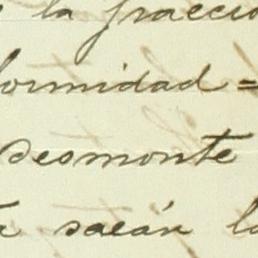 la fracció
formidad =
desmonte
sacán la